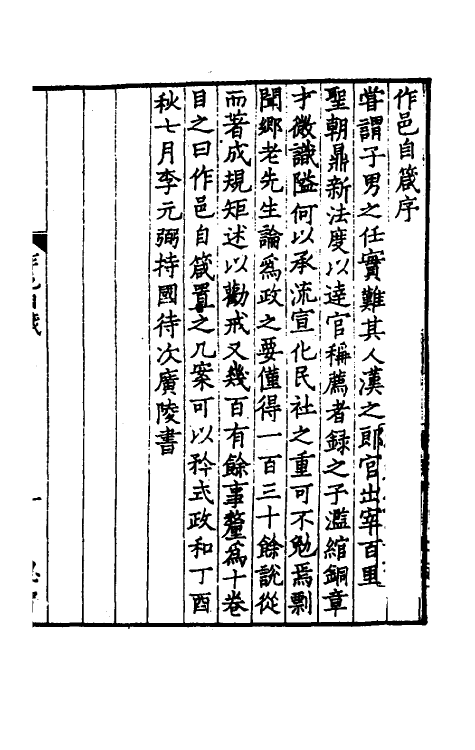 作邑自箴序
嘗謂子男之任實難其人漢之郎官出宰百里
聖朝鼎新法度以達官稱薦者録之予濫綰銅章
才微識隘何以承流宣化民社之重可不勉焉剽
聞鄉老先生論爲政之要僅得一百三十餘說從
而著成規矩述以勸戒又幾百有餘事釐爲十卷
目之曰作邑自箴置之几案可以矜式政和丁酉
秋七月李元弼持國待次廣陵書
作邑自箴
一